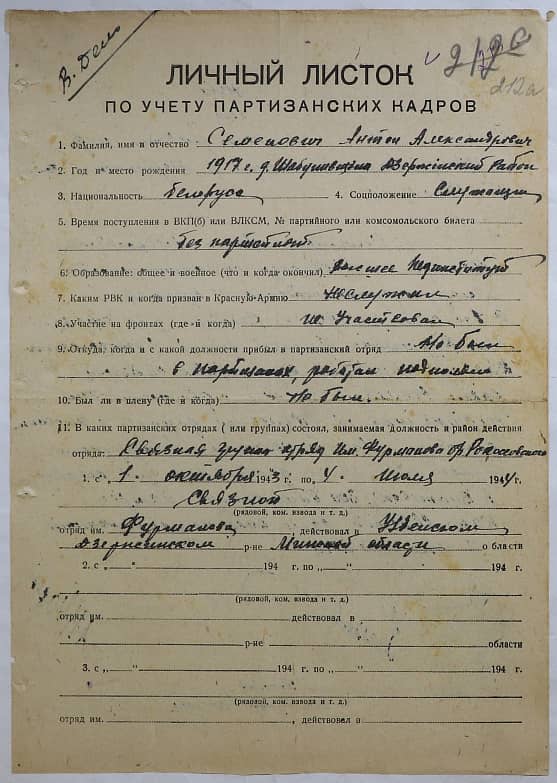 В дело
212а
ЛИЧНЫЙ ЛИСТОК
ПО УЧЕТУ ПАРТИЗАНСКИХ КАДРОВ
1. Фамилия, имя и отчество Семенович Антон Александрович
2. Год и место рождения 1917 г. д. Дзержинский район
3. Национальность белорус 4. Соцположение Служащий
5. Время поступления в ВКП(б) или ВЛКСМ, № партийного или комсомольского билета
Без партийный
6. Образование: общее и военное (что и когда окончил) высшее Пединститут
7. Каким РВК и когда призван в Красную-Армию Не служил
8. Участие на фронтах (где и когда) не участвовал
9. Откуда, когда и с какой должности прибыл в партизанский отряд Не был
в партизанах, работал
10. Был ли в плену (где и когда) Не был.
11. В каких партизанских отрядах (или группах) состоял, занимаемая должность и район действия
отряда: Связная группа отряд Им. Фурманова бр. Рокоссовского
1. с „ 1 октября 1943 г. по „ 4 „ Июля 1944 г.
Связной
(рядовой, ком. взвода и т. д.)
отряд им. Фурманова, действовал в Узденском
Дзержинском р-не Минской области о бласти
2. с „ " 194 г. по „ " 194 г.
(рядовой, ком. взвода и т. д.)
отряд им. действовал в
р-не области
3. с „ " 194 г. по „ " 194 г.
(рядовой, ком. взвода и т. д.)
отряд им. , действовал в